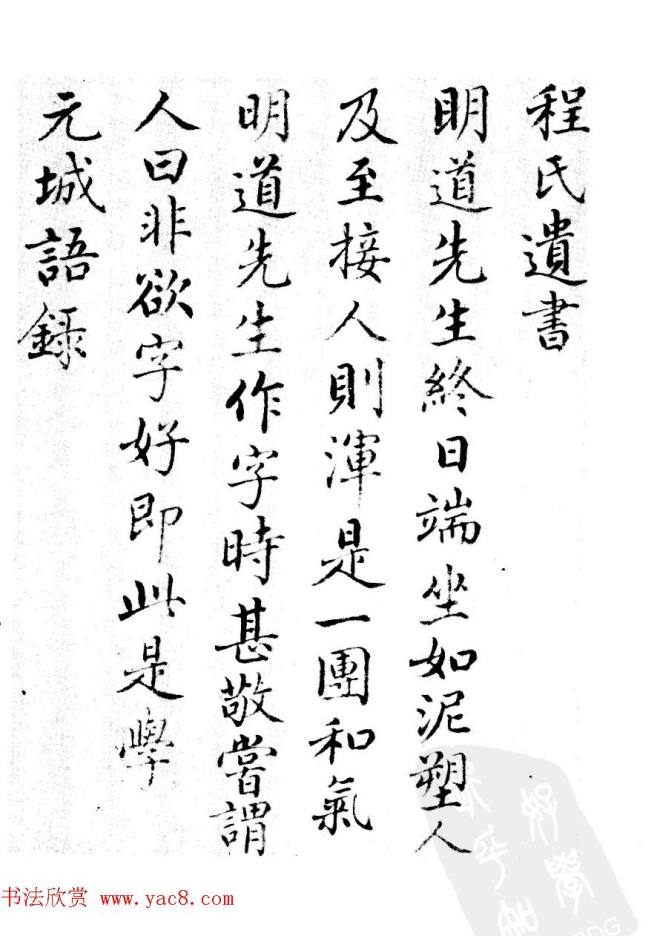 程氏遺書
明道先生終日端坐如泥塑人
及至接人則渾是一團和氣
明道先生作字時甚敬嘗謂
人曰非欲字好即此是學
元城語錄
书法欣赏 www.yac8.com